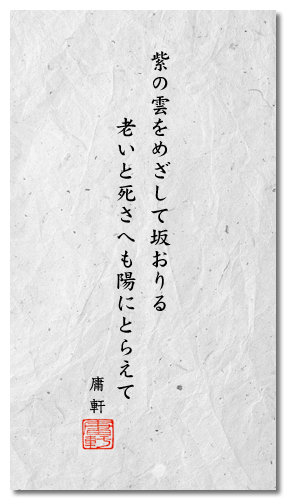 紫の雲をめざして坂おりる
老いと死さへも陽にとらえて
庸軒